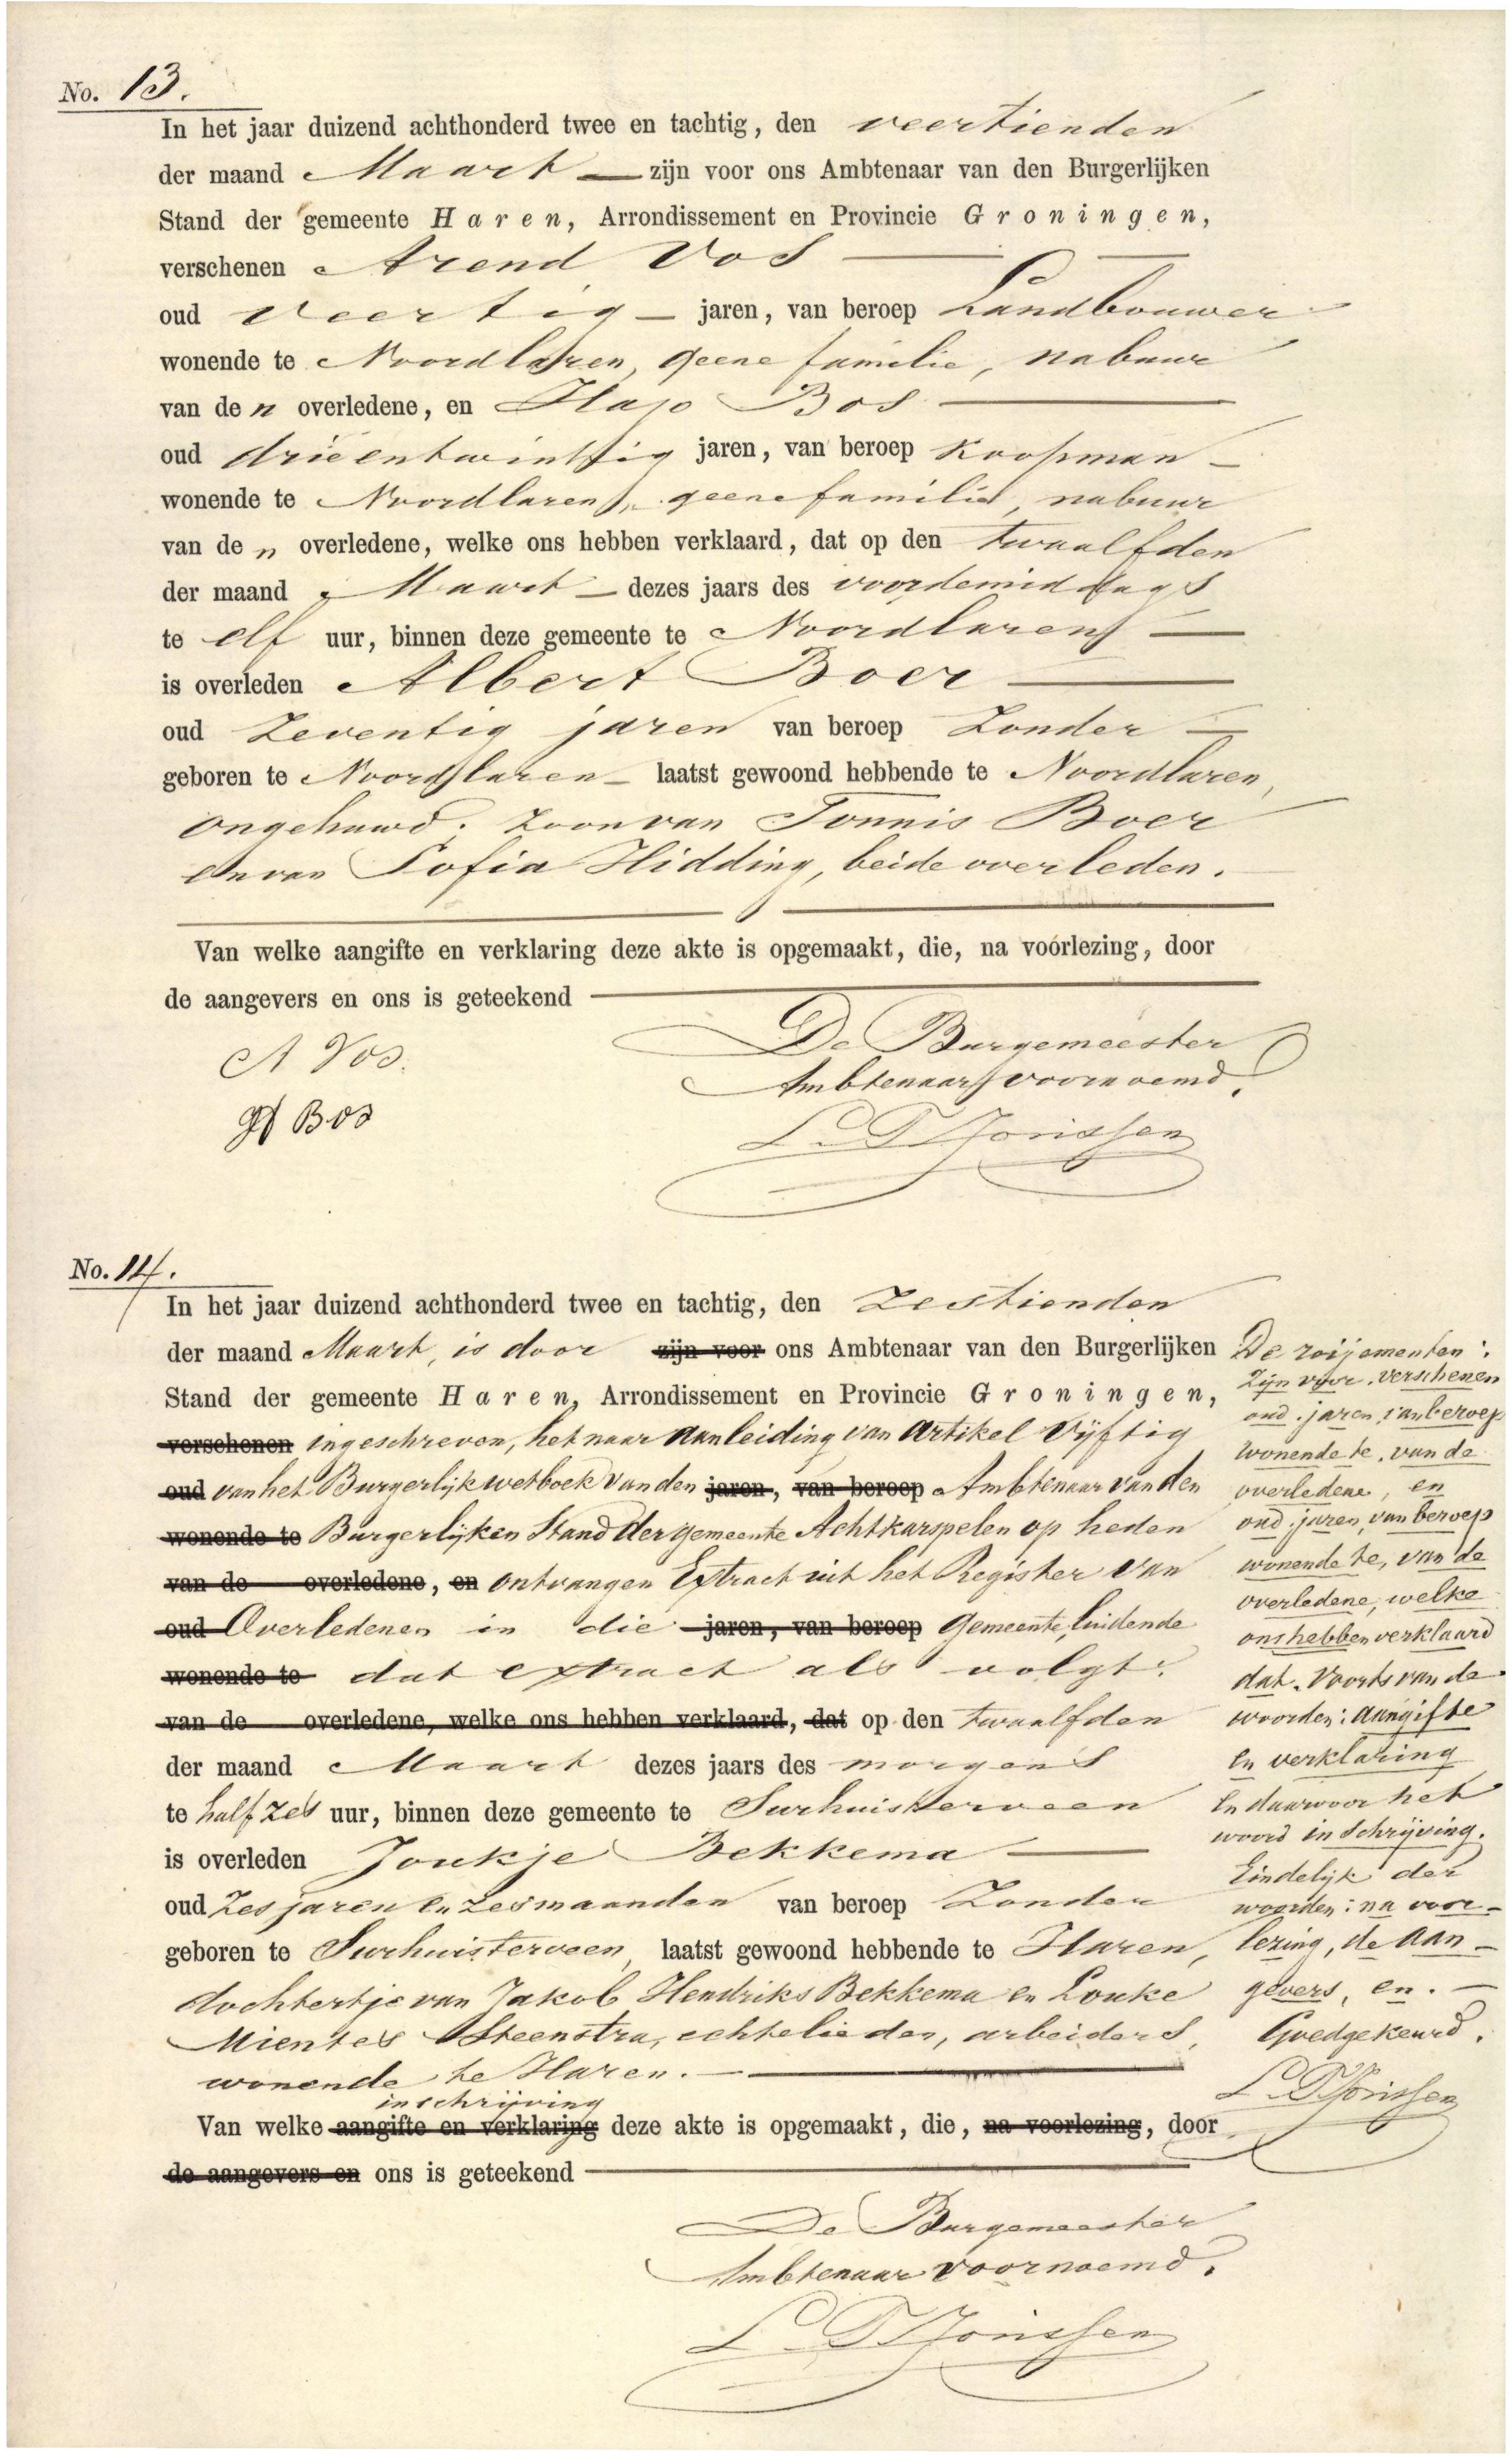 No. 13.
In het jaar duizend achthonderd twee en tachtig, den veertienden
der maand Maart — zijn voor ons Ambtenaar van den Burgerlijken
Stand der gemeente Haren, Arrondissement en Provincie Groningen,
verschenen Arend Vos
oud veertig — jaren, van beroep Landbouwer
wonende te Noordlaren, geene familie, nabuur
van den overledene, en Hajo Bos
oud drieentwintig jaren, van beroep Koopman
wonende te Noordlaren, geene familie, nabuur
van de n overledene, welke ons hebben verklaard, dat op den twaalfden
der maand Maart — dezes jaars des voordemiddags
te elf uur, binnen deze gemeente te Noordlaren
is overleden Albert Boer
oud Zeventig jaren van beroep Zonder
geboren te Noordlaren laatst gewoond hebbende te Noordlaren,
Ongehuwd. Zoon van Tonnis Boer
en van Sofia Hidding, beide overleden.
Van welke aangifte en verklaring deze akte is opgemaakt, die, na voorlezing, door
de aangevers en ons is geteekend
De Burgemeester
Ambtenaar voornoemd.
A Vos.
H Bos
No. 14.
In het jaar duizend achthonderd twee en tachtig, den Zestienden
der maand Maart, is door zijn voor ons Ambtenaar van den Burgerlijken
Stand der gemeente Haren, Arrondissement en Provincie Groningen,
verschenen ingeschreven, het naar Aanleiding van Artikel Vijftig
oud van het Burgerlijk wetboek van den jaren, van beroep Ambtenaar van den
wonende te Burgerlijken Stand der gemeente Achtkarspelen op heden
van de overledene, en ontvangen Extract uit het Register van
oud Overledenen in die jaren, van beroep Gemeente, luidende
wonende te dat extract als volgt:
van de overledene, welke ons hebben verklaard, dat op den twaalfden
der maand Maart dezes jaars des morgens
te half zes uur, binnen deze gemeente te Surhuisterveen
is overleden Joukje Bekkema
oud Zes jaren en zes maanden van beroep Zonder
geboren te Surhuisterveen laatst gewoond hebbende te Haren,
dochtertje van Jakob Hendriks Bekkema en Louke
Mientes Steenstra, echtelieden, arbeiders,
wonende te Haren.
inschrijving
Van welke aangifte en verklaring deze akte is opgemaakt, die, na voorlezing, door
de aangevers en ons is geteekend
De Burgemeester
Ambtenaar voornoemd.
De roijementen:
Zijn voor. verschenen
oud. jaren, van beroep
wonende te, van de
overledene, en
oud. jaren, van beroep
wonende te, van de
overledene, welke
ons hebben verklaard
dat. Voorts van de
woorden: Aangifte
en verklaring
En daarvoor het
woord inschrijving.
Eindelijk der
woorden: na voor-
lezing, de Aan-
gevers, en. —
Goedgekeurd.